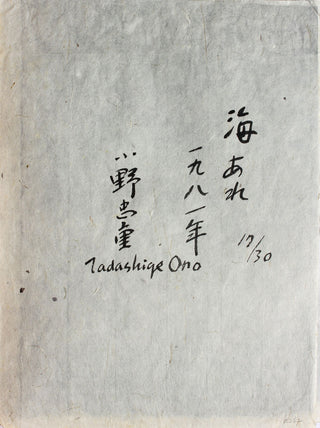 海あれ
一九八一年
17/30
小野忠重
Tadashige Ono